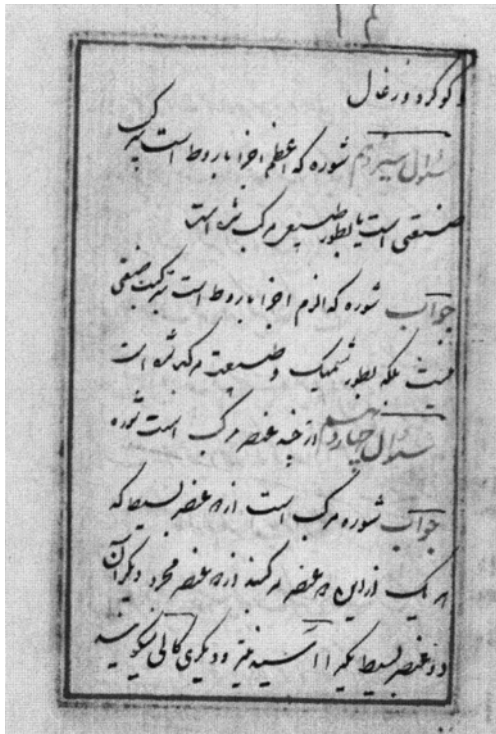 و گوگرد و زغال
سئوال سیزدهم شوره که اعظم اجزا باروط است بترکیب
صنعتی است یا بطور طبیعی مرکب شده است
جواب شوره که الزم اجزا باروط است بترکیب صنعتی
نیست بلکه بطور شمیک و طبیعت مرکب شده است
سئوال چهاردهم از چند عنصر مرکب است شوره
جواب شوره مرکب است از عنصر بسیط که
هر یک از این عنصر مرکبند از عنصر مجرد دیگر آن
دو عنصر بسیط یکی را اسید نیتر و دیگری کالی میگویند